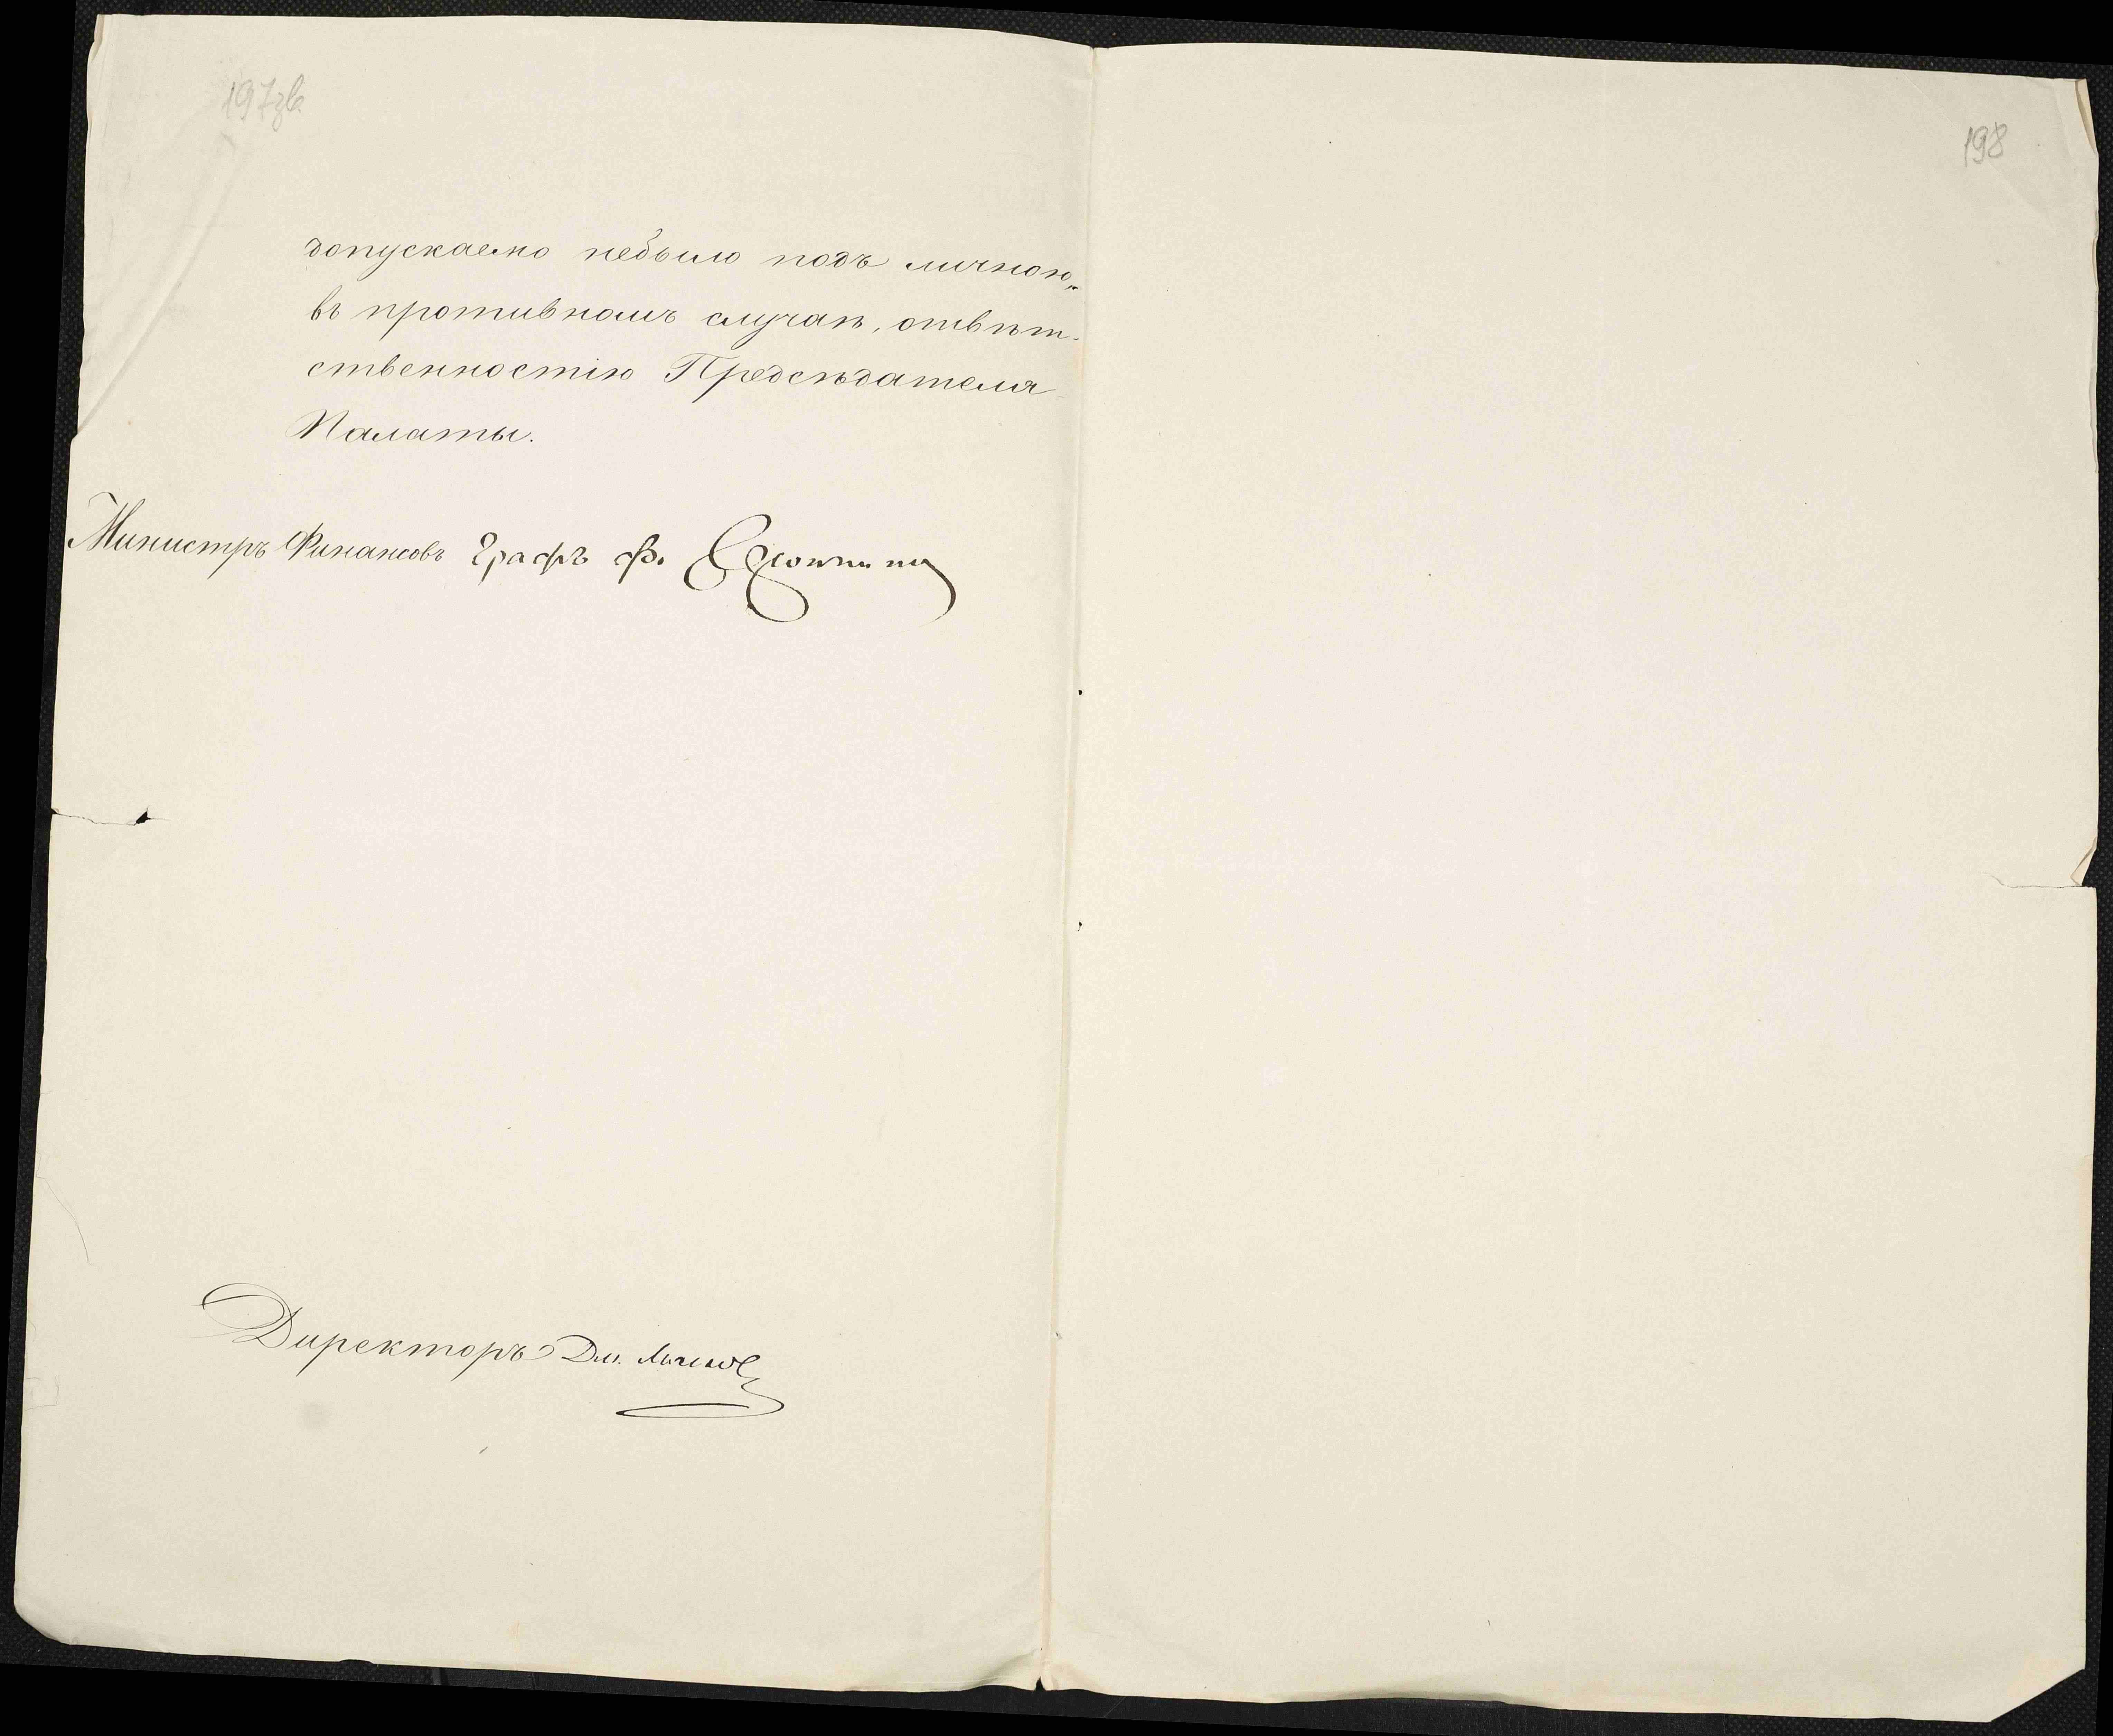 197зв
198
допускаемо небыло подъ личною,
въ противномъ случаѣ, отвѣт-
ственностію Предсѣдателя
Палаты.
Министръ Финансовъ Графъ Ф.
Директоръ Дм.